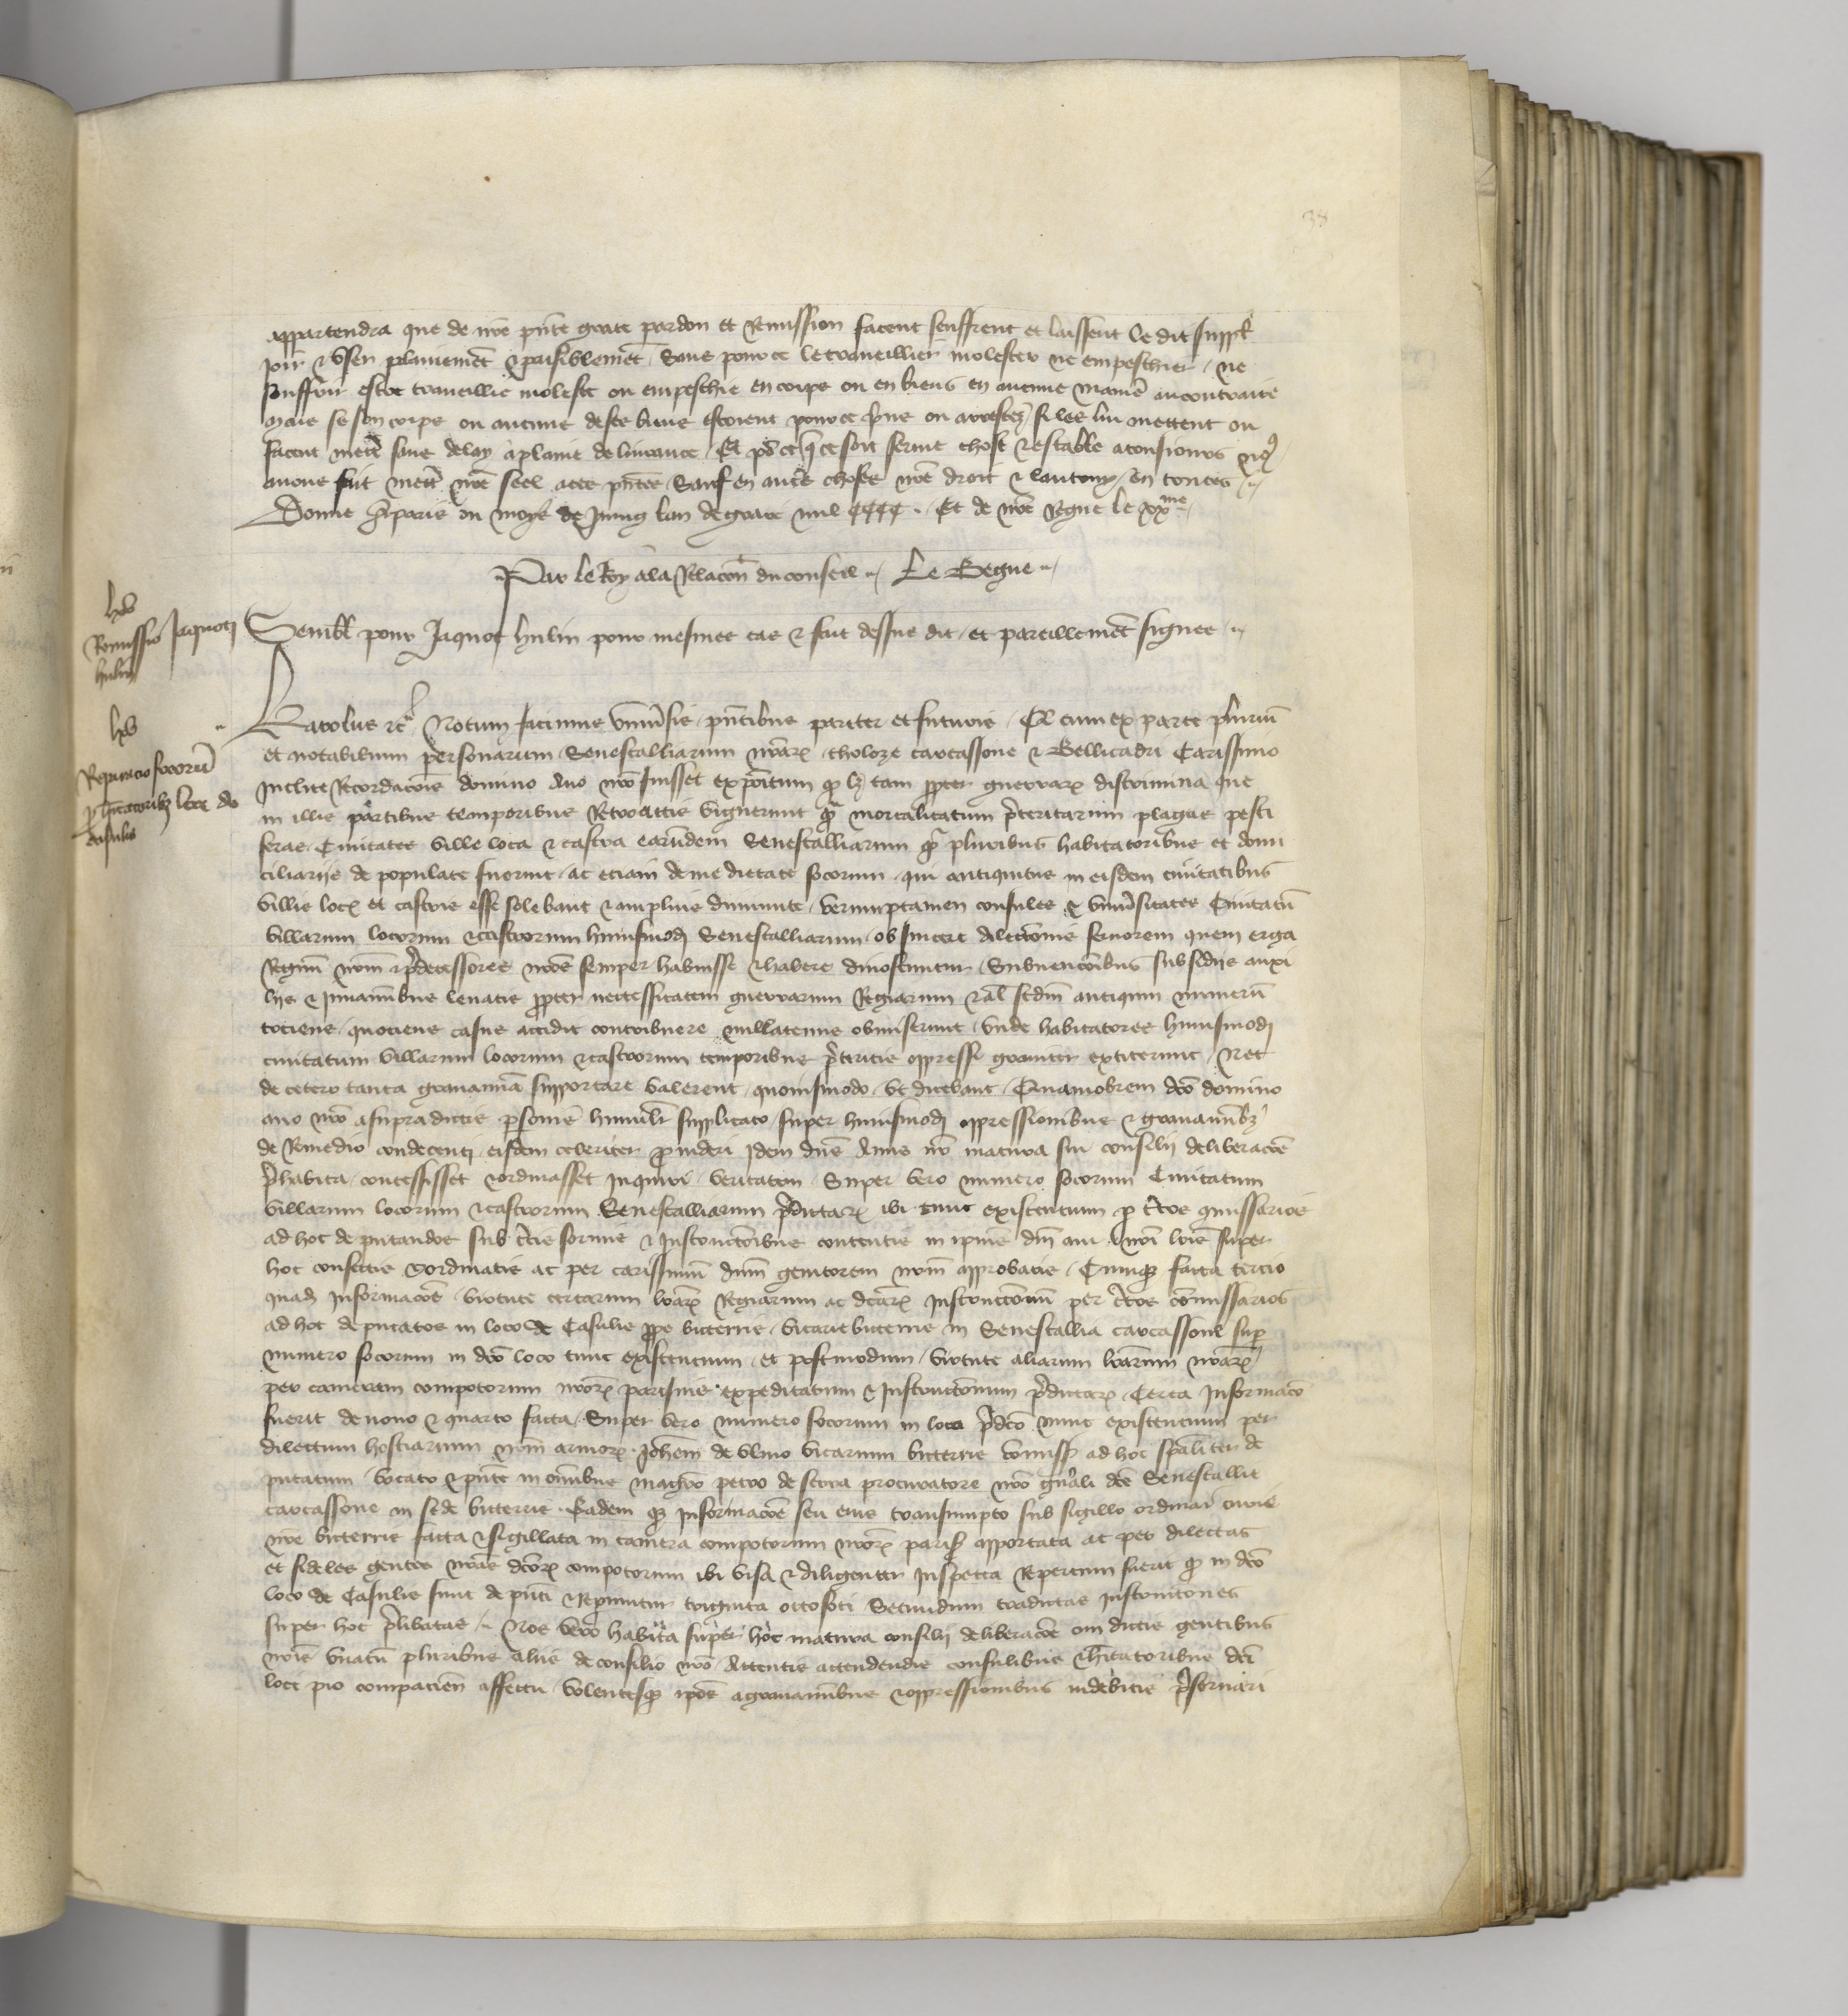 38
appartendra que de nre pnte grace pardon et Remission facent seuffrent et laissent ledit suppl
joir & User plainemēt & paisiblemēt Sans pour ce le traveillier molester ne empeschier / ne
souffrir estre traveillie moleste ou empeschie en corps ou en biens en aucune maniē au contraire
Mais se son corps ou aucuns de ses biens estoient pour ce prins ou arrestez / si les lui mettent ou
facent mettē sans delay a plaine delivrance / Et por ce q ce soit ferme chose & estable a tousiours no9
avons fait mettē nrē seel a ces pntes / Sauf en autē choses nrē droit & lautruy / en toutes
Donne a paris ou moys de Juing lan de grace mil CCCC . Et de nrē Regne le xxme
Par le Roy a la Relacōn du conseil / Le Begue
lxv
Remissio Jaquoti
hulin
Sembl pour Jaquot hulin pour mesmes cas & fait dessus dit / et pareillemēt signee
lxvi
Reparacio focorū
p hītatoribz loci de
Casulis
Karolus &c Notum facimus Univsis pntibus pariter et futuris / Q cum ex parte plurium
et notabilium personarum Senescalliarum nrarz tholoze carcassone & Bellicadri Carissimo
Inclite Recordacōis domino Avo nrō fuisset expōitum q lz tam ppter guerrarz discrimina que
in illis partibus temporibus Retroactis viguerunt q mortalitatum pteritarum plagas pesti
feras Civitates Ville loca & castra earūdem Senescalliarum q pluribus habitatoribus et domi
ciliariis depopulate fuerint / ac etiam de medietate focorum qui antiquitus in eisdem civitatibus
Villis locis et castris esse solebant & amplius diminute / verumptamen consules & Univsitates Civitatū
Villarum locorum & castrorum huiusmodi Senescalliarum ob sincere dilectōnis fervorem quem erga
Regnū nrm & pdecessores nros semper habuisse & habere dinoscuntur / Subvenciōibus subsidiis auxi
liis & juvamībus levatis ppter necessitatem guerrarum Regiarum & al scdm antiquum numerū
tociens quociens casus accidit contribuere nullatenus obmiserunt / Unde habitatores huiusmodi
civitatum Villarum locorum & castrorum temporibus pteritis oppressi graviter extiterunt / Nec
de cetero tanta gravamina supportare valerent quovismodo / ut dicebant / Quamobrem dco domino
avo nrō a supradictis psonis humilr supplicato super huiusmodi oppressionibus & gravamibz
de Remedio condecenti eisdem celeriter provideri Idem dns Avus nr matura sui consilii deliberacōe
phabita concessisset & ordinasset Inquiri veritatem / Super vero numero focorum Civitatum
Villarum locorum & castrorum Senescalliarum pdictarz ibi tunc existentum p ctos comissarios
ad hoc deputandos sub certis formis & Instructōibus contentis in ipius dni avi nri lris super
hoc confectis & ordinatis ac per carissimum dnm genitorem nrm approbatis / Cumq facta tercio
quadam Informacōe virtute certarum lrarz Regiarum ac dictarz Instructōnum per ctos comissarios
ad hoc deputatos in loco de Casulis ppe biterris vicarie biterris in Senescallia carcassone sup
numero focorum in dco loco tunc existentum / et postmodum virtute aliarum lrarum nrarz
per cameram compotorum nrorz parisius expeditarum & Instructōnum pdictarz Certa Informacō
fuerit de novo & quarto facta / Super vero numero focorum in loco pdco nunc existentum per
dilectum hostiarium nrm armorz Johem de Ulmo vicarium biterris comiss ad hoc spaliter de
putatum / vocato & pnte in omībus magro petro de scura procuratore nrō gnāli dce Senescallie
carcassone in sede biterris / Eadem q Informacōe seu eius transumpto sub sigillo ordinar curie
nre biterris facta & sigillata in camera compotorum nrorz paris apportata ac per dilectas
et fideles gentes nras dcorz compotorum ibi visa & diligenter Inspecta Repertum fuerit q in dco
loco de Casulis sunt de pnti & Reperiuntur triginta octo foci Secundum traditas Instructones
super hoc plibatas / Nos vero habita super hoc matura consilii deliberacōe cum dictis gentibus
nris vnacū pluribus aliis de consilio nro Attentis attendendis consulibus & hītatoribus dci
loci pio compacien affectu Volentesq ipos a gravamibus & oppressionibus indebitis pservari